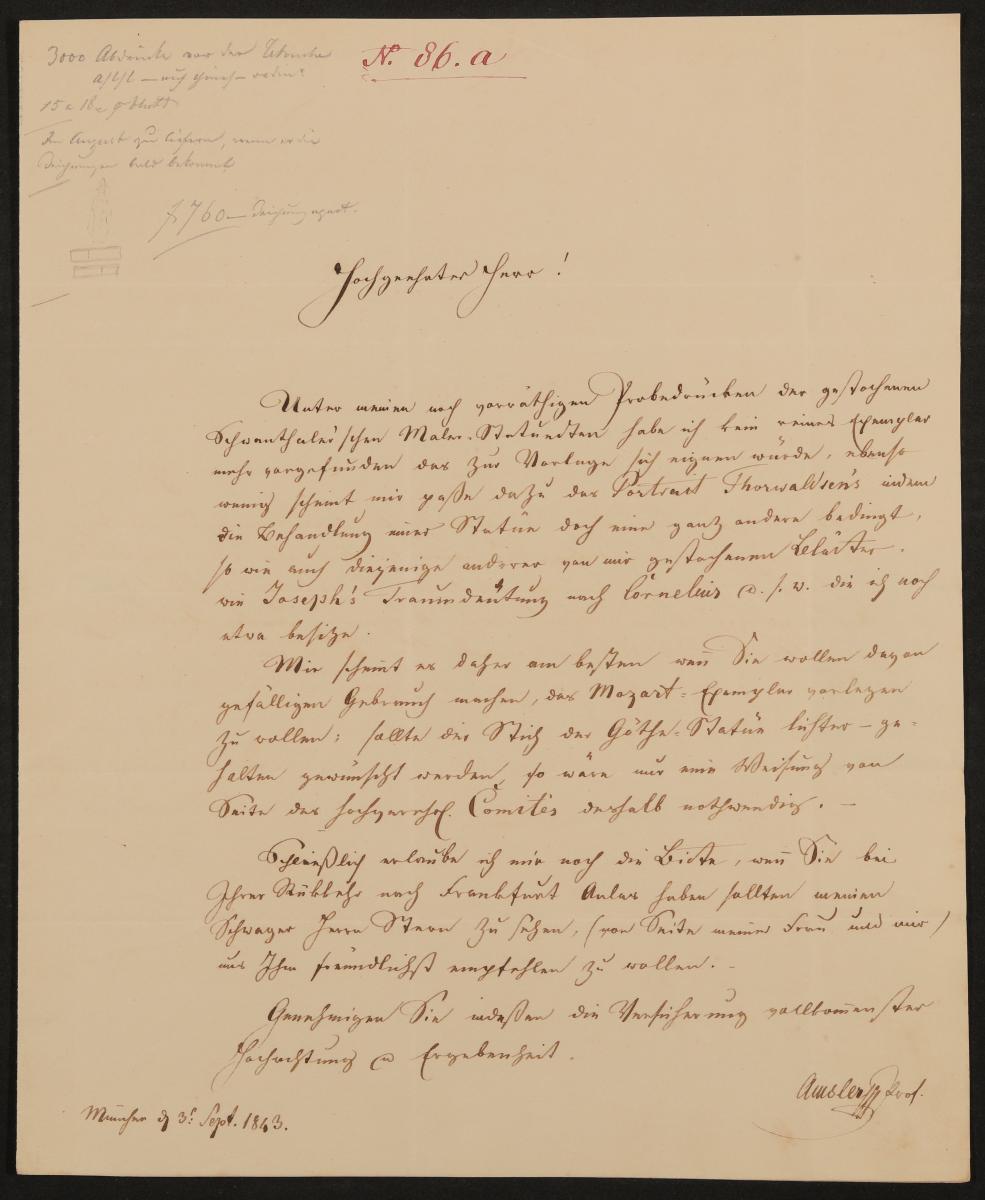 3000 Abdrücke vor der
15 a 18
Im August zu liefern, wenn er die
Zeichnungen bald bekommt
f 760 — Zeichnung apart.
No. 86. a
Hochgeehrter Herr!
Unter meinen noch vorräthigen Probedrücken der gestochenen
Schwanthaler'schen Maler-Statuedten habe ich kein reines Exemplar
mehr vorgefunden das zur Vorlage sich eignen würde, ebenso
wenig scheint mir paße dazu das Portrait Thorwaldsen's indem
die Behandlung einer Statüe doch eine ganz andere bedingt,
so wie auch diejenige anderer von mir gestochenen Blätter.
wie Joseph's Traumdeutung nach Cornelius u. s. w. die ich noch
etwa besitze.
Mir scheint es daher am besten wen̄ Sie wollen davon
gefälligen Gebrauch machen, das Mozart-Exemplar vorlegen
zu wollen; sollte der Stich der Göthe-Statüe lichter – ge-
halten gewünscht werden, so wäre nur eine Weisung von
Seite des hochverehrl. Comités deshalb nothwendig. —
Schließlich erlaube ich mir noch die Bitte, wen̄ Sie bei
Ihrer Rükkehr nach Frankfurt Anlas haben sollten meinen
Schwager Herrn Stern zu sehen, (von Seite meiner Frau und mir)
uns Ihm freundlichst empfehlen zu wollen. –
Genehmigen Sie indeßen die Versicherung vollkom̄enster
Hochachtung u Ergebenheit.
Amsler Prof.
München d 3t Sept. 1843.